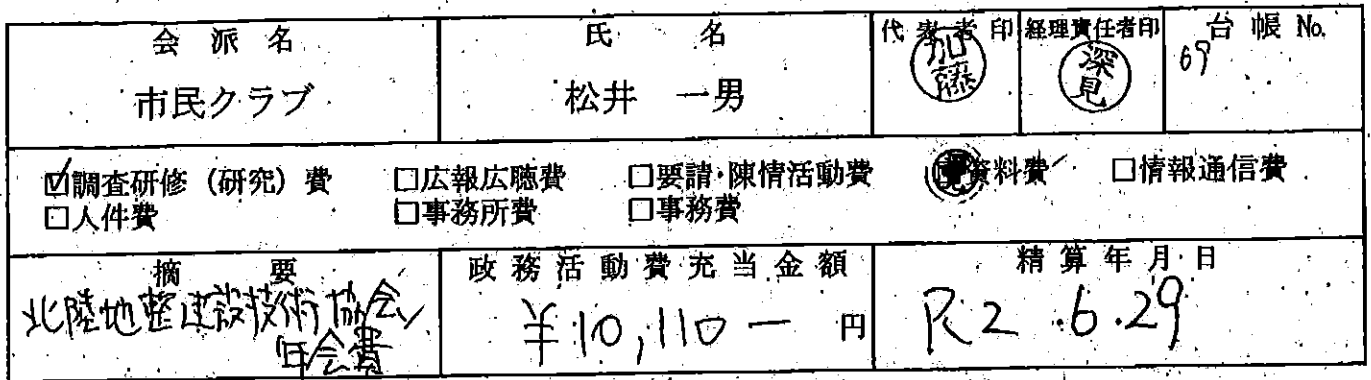 会派名 氏名 代表者印 経理責任者印 台帳No.
市民クラブ 松井 一男 加藤 深見 69
☑調査研修（研究）費 □広報広聴費 □要請・陳情活動費 資料費 □情報通信費
□人件費 □事務所費 □事務費
摘要 政務活動費充当金額 精算年月日
北陸地整建設技術協会 ¥10,110— 円 R2.6.29
年会費